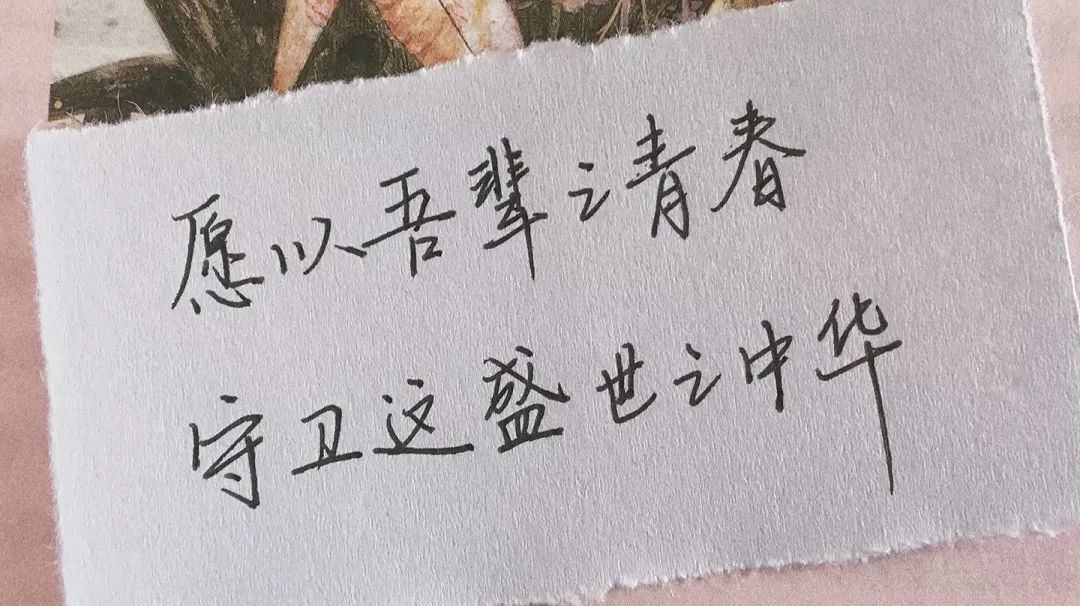 愿以吾辈之青春
守卫这盛世之中华